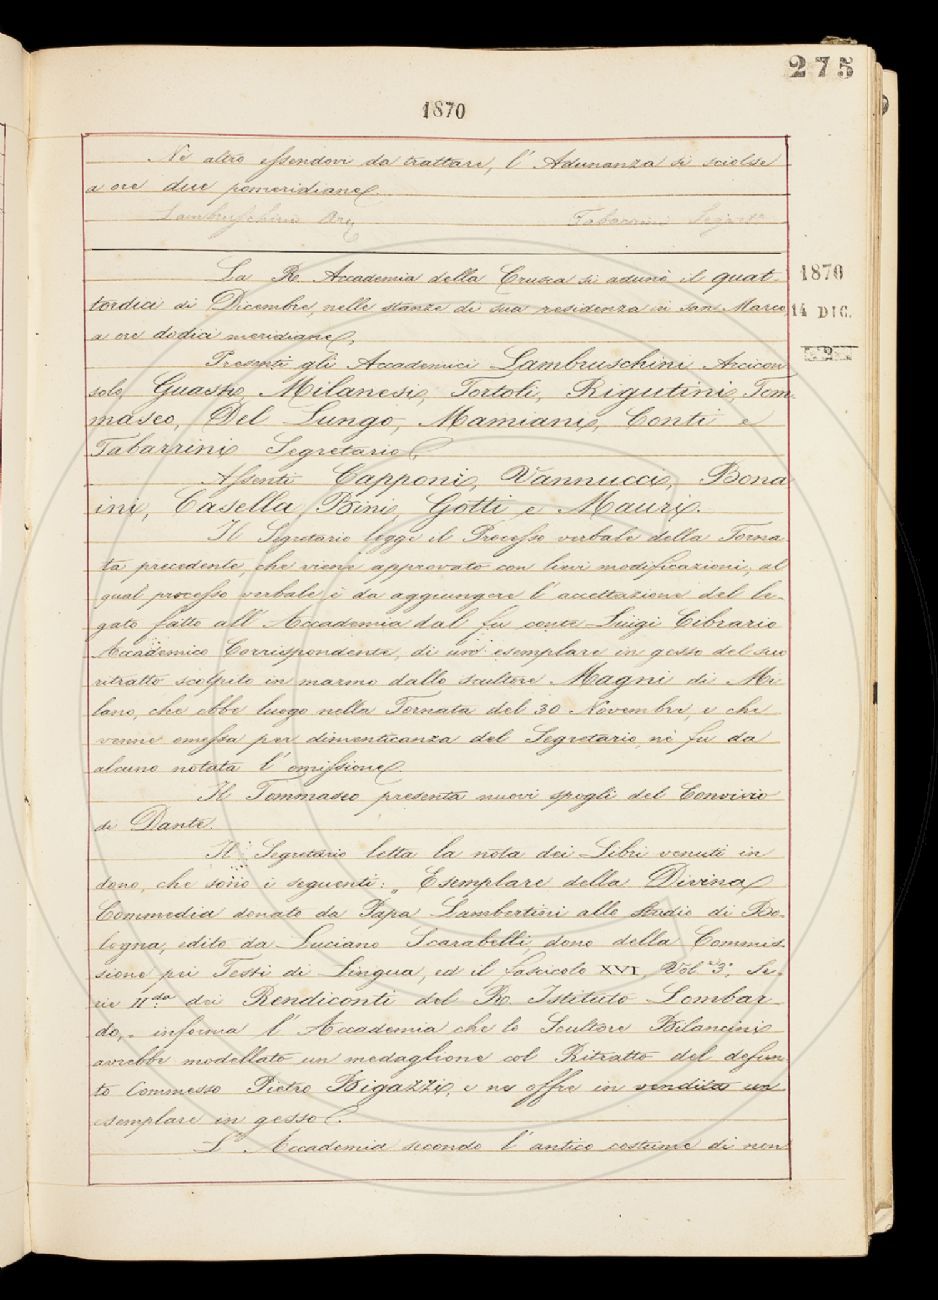 275
1870
Nè altro essendovi da trattare, l'Adunanza si sciolse
a ore due pomeridiane.
Lambruschini Arc. Tabarrini Segret.
La R. Accademia della Crusca si adunò il quat-
tordici di Dicembre, nelle stanze di sua residenza in San Marco
a ore dodici meridiane.
1870
14 DIC.
Presenti gli Accademici Lambruschini Arcicon
solo, Guasti, Milanesi, Tortoli, Rigutini, Tom-
maseo, Del Lungo, Mamiani, Conti e
Tabarrini Segretario.
Assenti Capponi, Vannucci, Bona
ini, Casella Bini Gotti e Mauri.
Il Segretario legge il Processo verbale della Torna
ta precedente, che viene approvato con lievi modificazioni, al
qual processo verbale è da aggiungere l'accettazione del le-
gato fatto all'Accademia dal fu conte Luigi Cibrario
Accademico Corrispondente, di un esemplare in gesso del suo
ritratto scolpito in marmo dallo scultore Magni di Mi-
lano, che ebbe luogo nella Tornata del 30 Novembre, e che
venne omessa per dimenticanza del Segretario, nè fu da
alcuno notata l'omissione.
Il Tommaseo presenta nuovi spogli del Convivio
di Dante.
Il Segretario letta la nota dei Libri venuti in
dono, che sono i seguenti: „ Esemplare della Divina
Commedia donato da Papa Lambertini allo Studio di Bo-
logna, edito da Luciano Scarabelli, dono della Commis-
sione pei Testi di Lingua, ed il fascicolo XVI, Vol. 3°, Se-
rie II.da dei Rendiconti del R. Istituto Lombar-
do, „ informa l'Accademia che lo Scultore Bilancini
avrebbe modellato un medaglione col Ritratto del defun-
to Commesso Pietro Bigazzi, e ne offre in vendita un
esemplare in gesso.
L'Accademia secondo l'antico costume di non